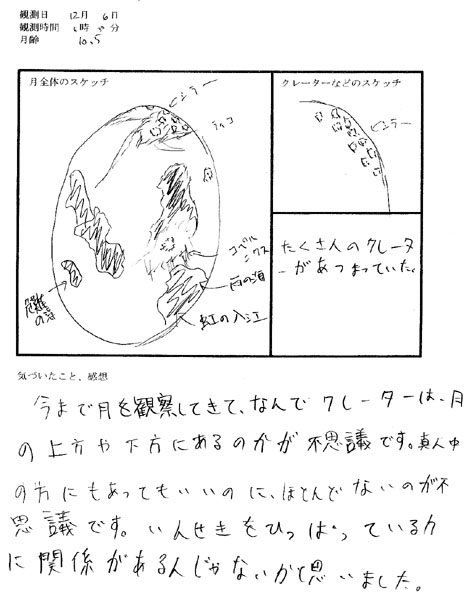 観測日 12月 6日
観測時間 6時 分
月齢 10.5
月全体のスケッチ
クレーターなどのスケッチ
ピシラー
ティコ
ピシラー
コペルニクス
雨の海
虹の入江
危難の海
たくさんのクレータ
ーがあつまっていた。
気づいたこと、感想
今まで月を観察してきて、なんでクレーターは、月
の上方や下方にあるのかが不思議です。真ん中
の方にもあってもいいのに、ほとんどないのが不
思議です。いんせきをひっぱっている力
に関係があるんじゃないかと思いました。